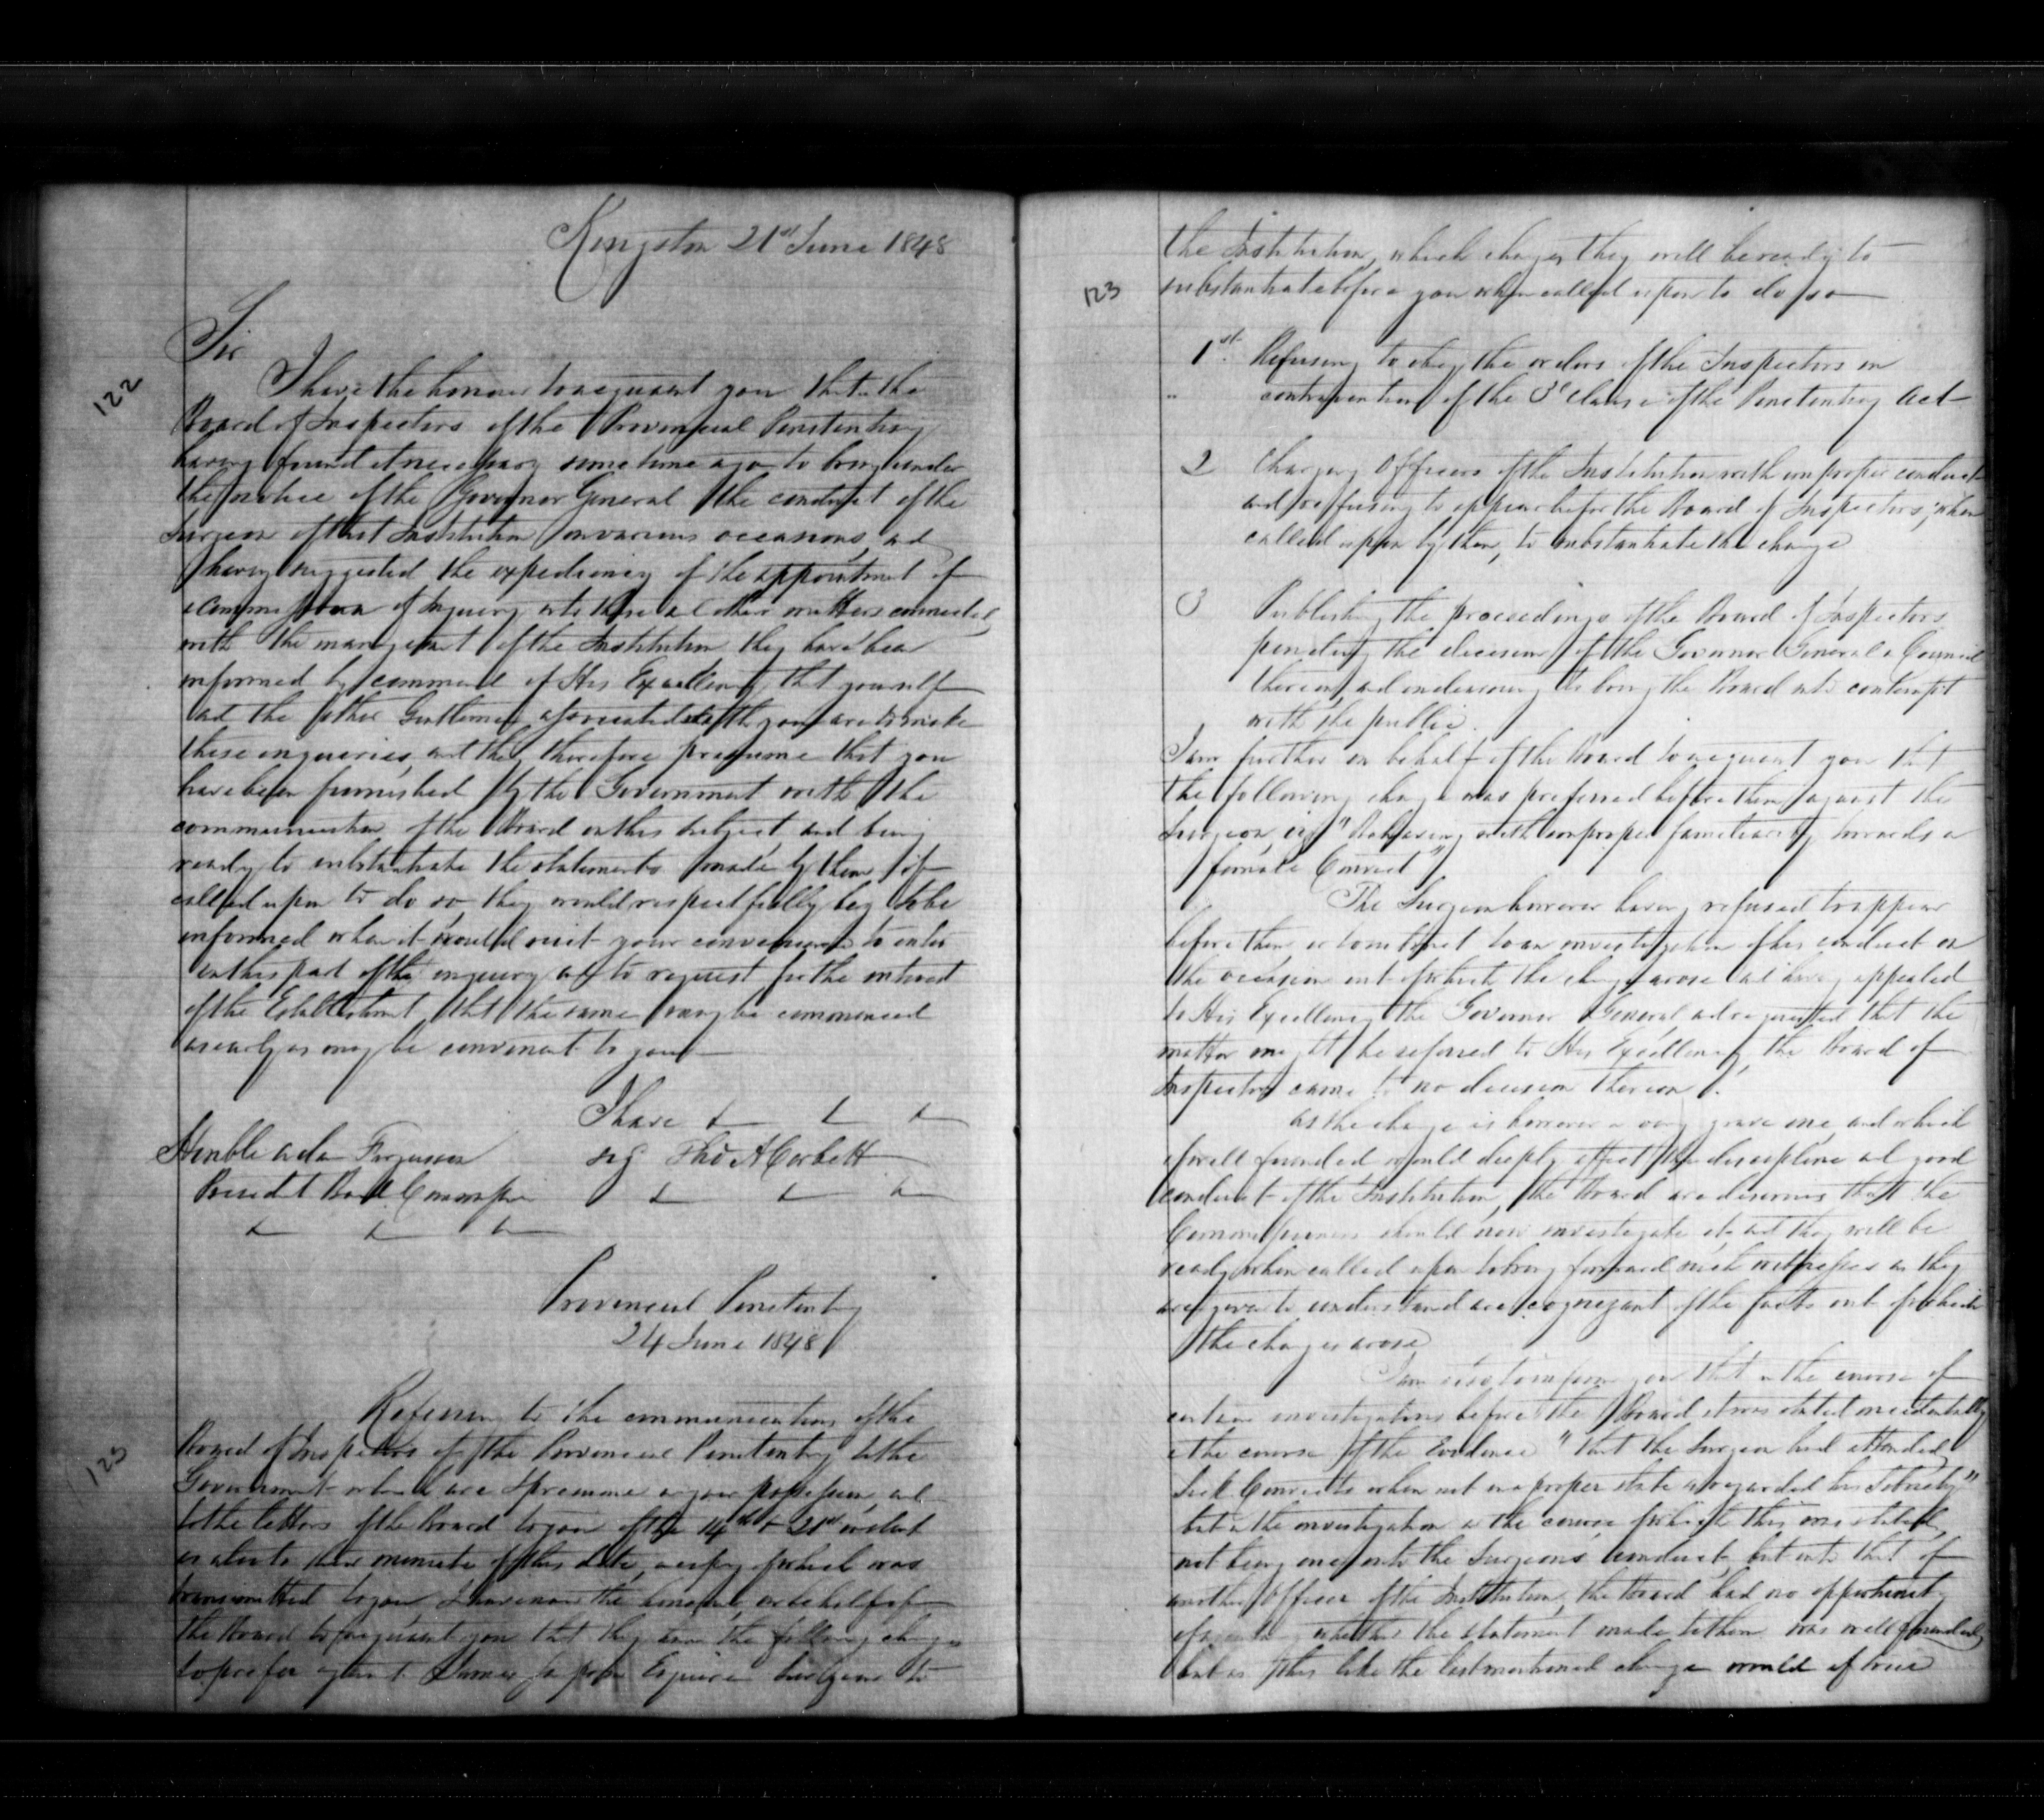 Kingston 21st June 1848
122
Sir
I have the honour to acquaint you that the
Board of Inspectors of the Provincial Penitentiary
having found it necessary some time ago to bring under
the notice of the Governor General the conduct of the
Surgeon of that Institution on various occasions, and
having suggested the expediency of the appointment of
a Commission of Inquiry into these & other matters connected
with the management of the Institution they have been
informed by command of His Excellency that yourself
and the other Gentlemen associated with you are to make
these enquiries, and they therefore presume that you
have been furnished by the Government with the
communication of the Board on this subject and being
ready to substantiate the statements made by them if
called upon to do so, they would respectfully beg to be
informed when it would suit your convenience to enter
on this part of the enquiry and to request for the interest
of the Establishment that the same may be commenced
as early as may be convenient to you
I have & & &
sig Thos A Corbett
& & &
Honble Adam Fergusson
President Board Commission
& & &
Provincial Penitentiary
24 June 1848
123
Referring to the communications of the
Board of Inspectors of the Provincial Penitentiary to the
Government which are I presume in your possession, and
to the letters of the Board to you of the 14th & 21st instant
as also to their minute of this date, a copy of which was
transmitted to you I have now the honour, on behalf of
the Board to acquaint you that they have the following charges
to prefer against James Sampson Esquire Surgeon to
123
the Institution, which charges they will be ready to
substantiate before you when called upon to do so
1st. Refusing to obey the orders of the Inspectors in
" contravention of the 3d clause of the Penitentiary Act
2 Charging Officers of the Institution with improper conduct
and refusing to appear before the Board of Inspectors, when
called upon by them, to substantiate the charge
3 Publishing the proceedings of the Board of Inspectors
pending the decision of the Governor General & Council
thereon, and endeavouring to bring the Board into contempt
with the public.
I am further on behalf of the Board to acquaint you that
the following charge was preferred before them against the
Surgeon viz "Behaving with improper familiarity towards a
female Convict"
The Surgeon however having refused to appear
before them, or to submit to an investigation of his conduct on
the occasion out of which the charge arose and having appealed
to His Excellency the Governor General, and requested that the
matter might be referred to His Excellency, the Board of
Inspectors came to no decision thereon.
As the charge is however a very grave one, and which
if well founded would deeply affect the discipline and good
conduct of the Institution, the Board are desirous that the
Commissioners should now investigate it, and they will be
ready when called upon to bring forward such witnesses as they
are given to understand are cognizant of the facts out of which
the charges arose
I am also to inform you that in the course of
certain investigations before the Board it was stated incidentally
in the course of the Evidence "that the Surgeon had attended
Sick Convicts when not in a proper state as regarded his Sobriety"
but the investigation in the course of which this was stated,
not being one into the Surgeon's conduct but into that of
another Officer of the Institution, the Board had no opportunity
of whether the statement made to them was well founded
but as this like the last mentioned charge would if true